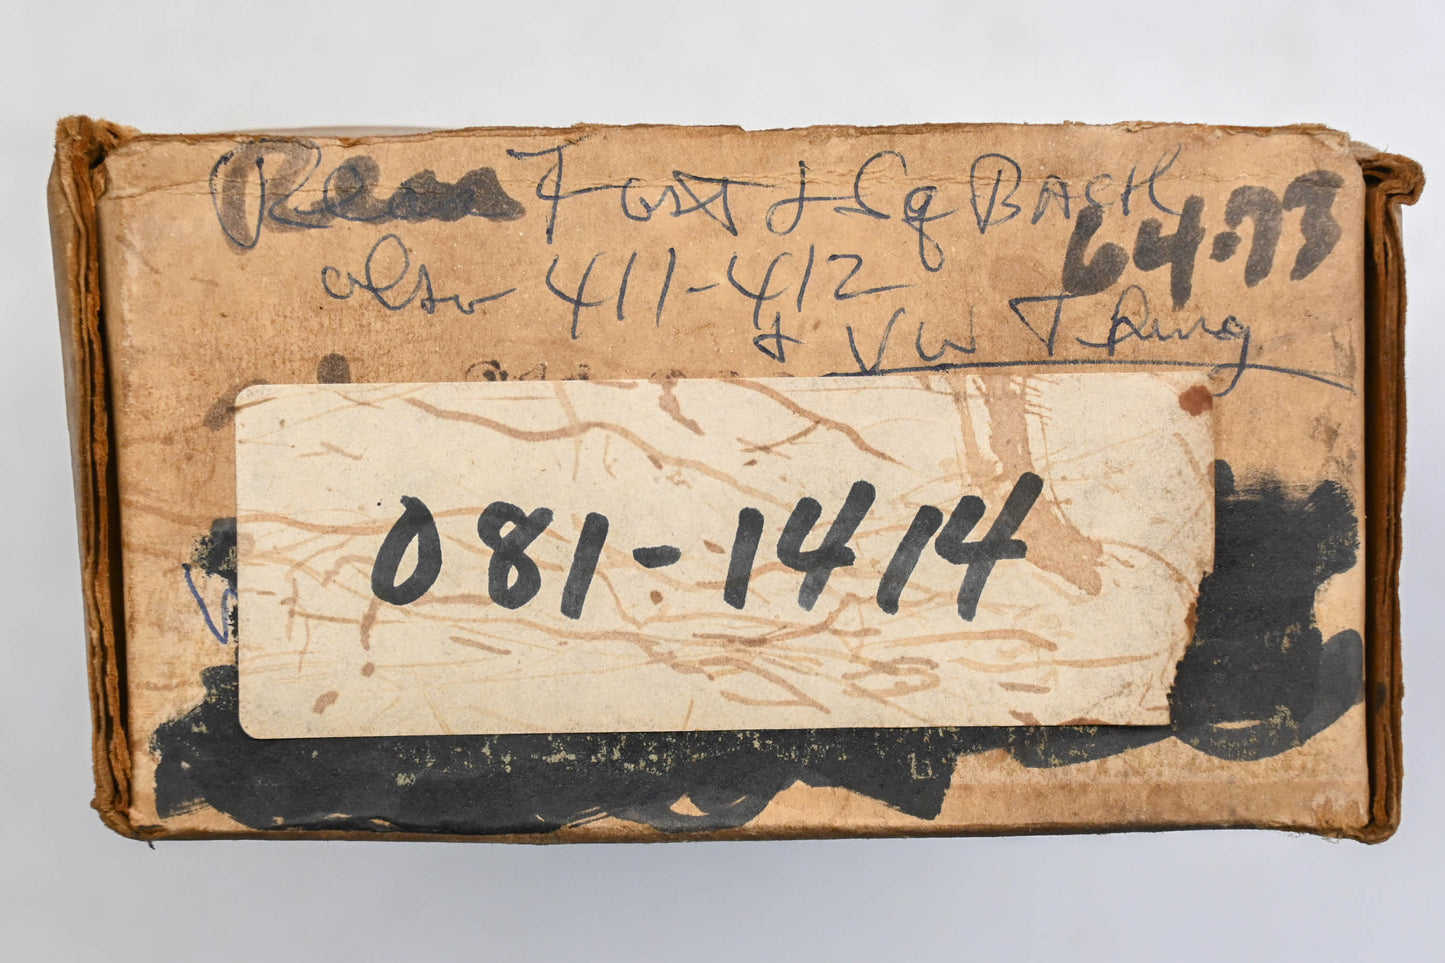 Rear Fast & Sq BACK 64-73
also 411-412
& VW Thing
081-1414